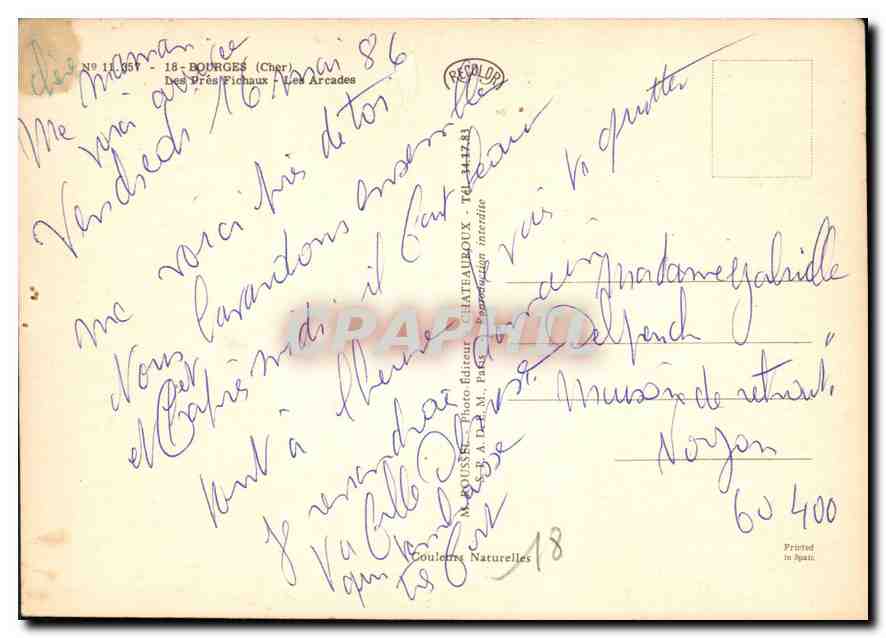 Nº 11.357 - 18 - BOURGES (Cher)
Les Prés Fichaux - Les Arcades
RECOLOR
Me maman
voici arrivée
Vendredi 16 mai 86
me voici près de toi
Nous bavardons ensemble
cet
et l'après midi. il faut beau
tout à l'heure je vais te quitter
Je reviendrai demain
Ta fille
qui t'embrasse
très fort
M. ROUSSEL - Photo-Éditeur - CHATEAUROUX - Tél. 34-17.83
S.P.A.D.E.M., Paris - Reproduction interdite
CPAPHIL
Madame Gabrielle
Delpench
Maison de retraite
Noyon
60 400
Couleurs Naturelles
18
Printed
in Spain